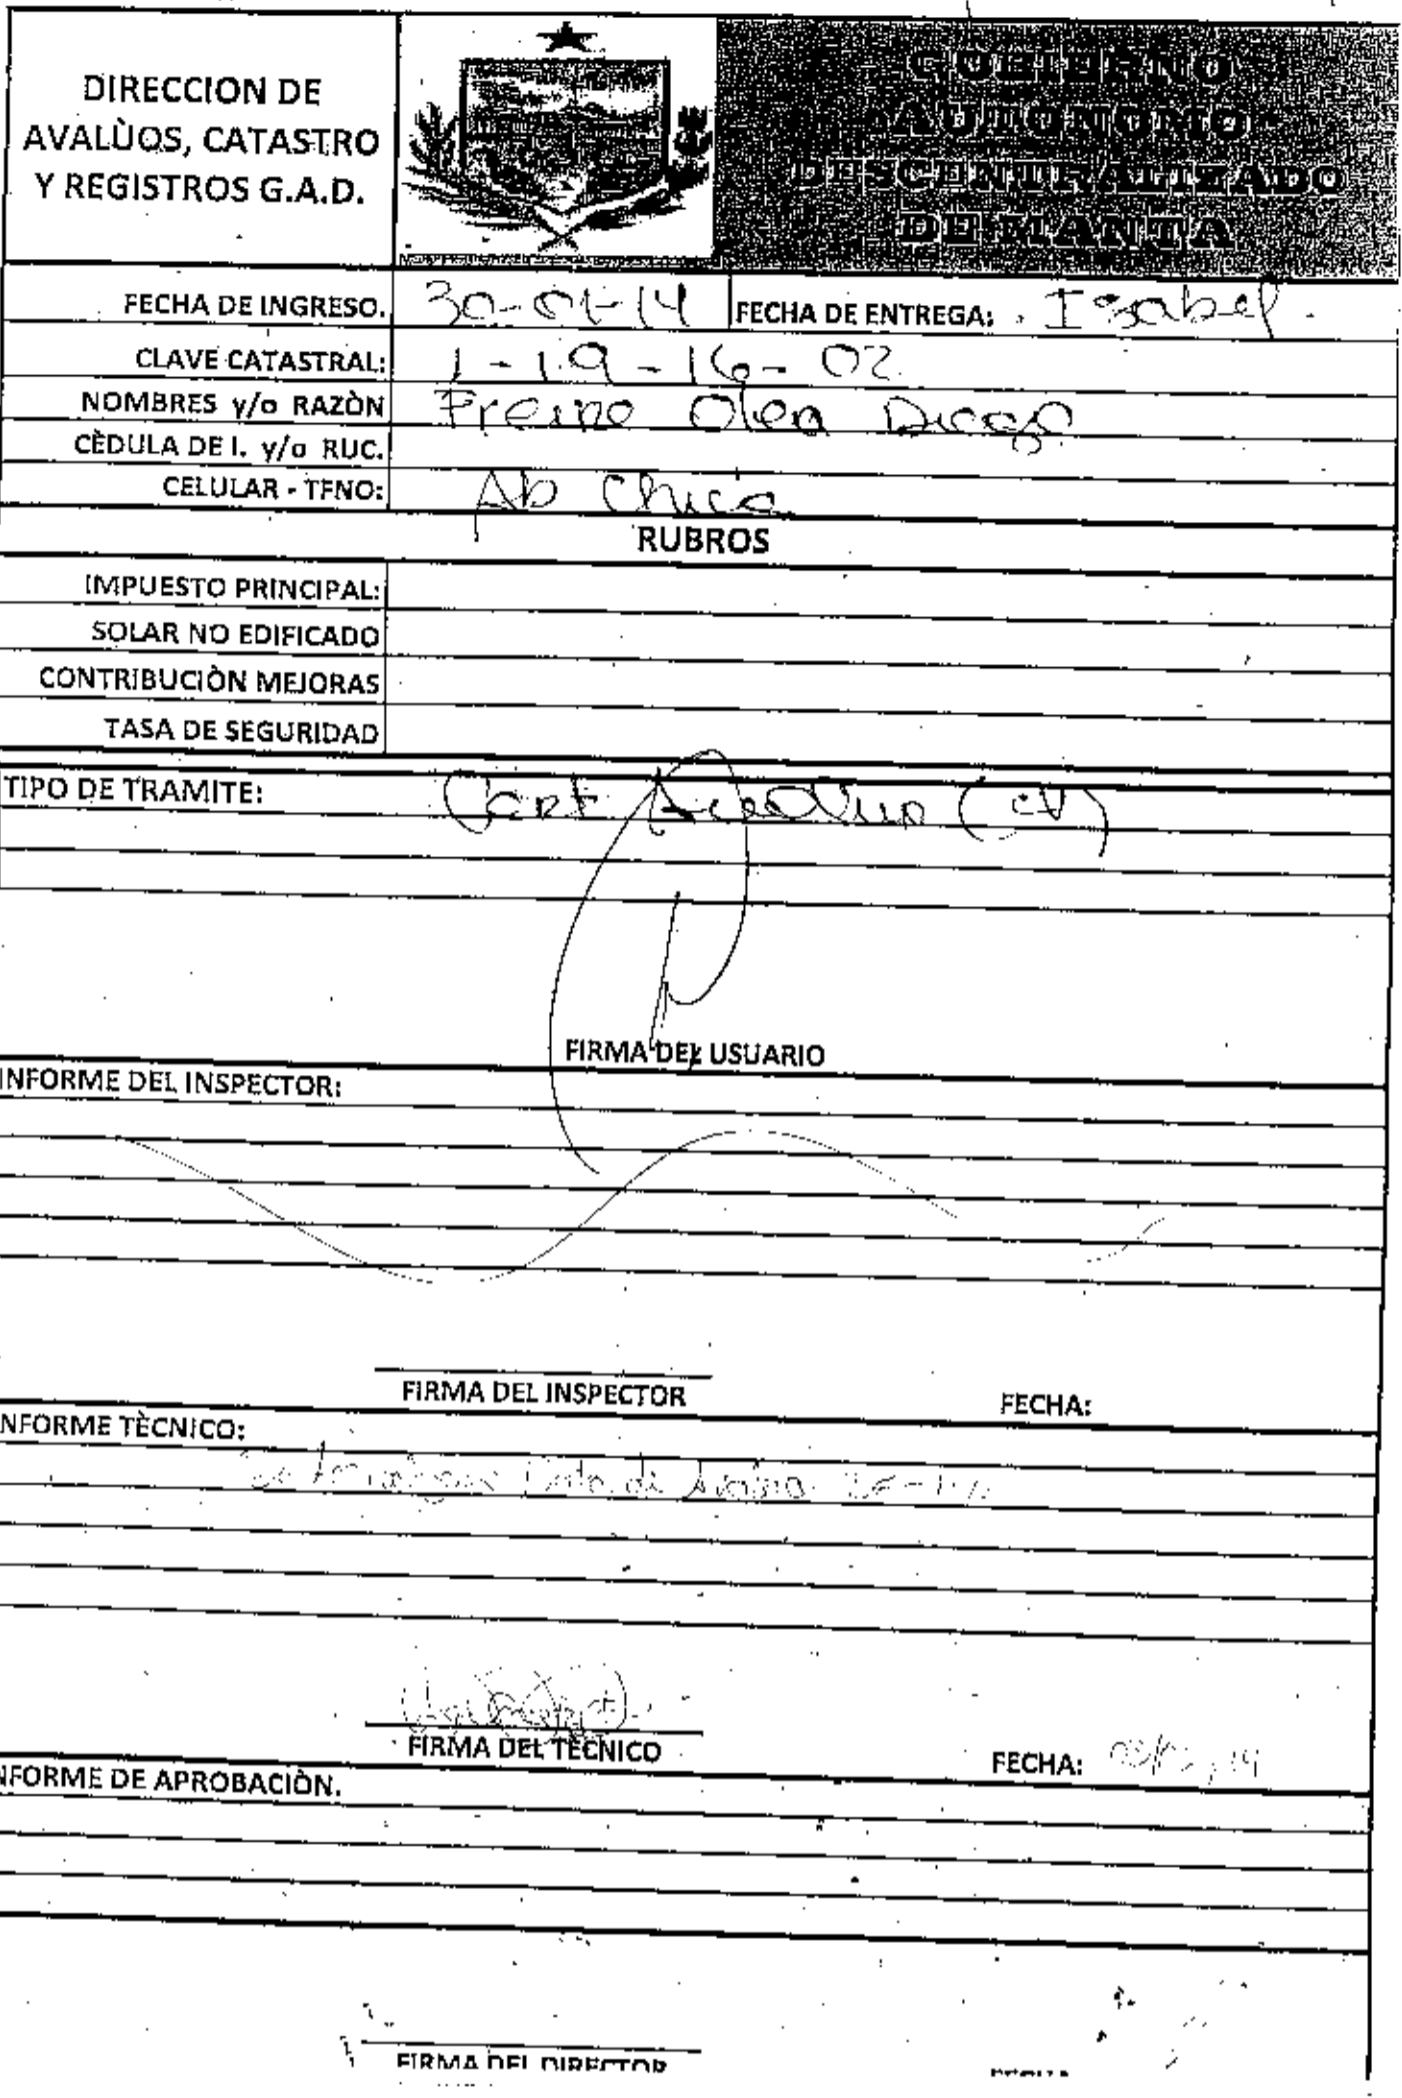 DIRECCION DE
AVALÙOS, CATASTRO
Y REGISTROS G.A.D.
GOBIERNO
AUTONOMO
DESCENTRALIZADO
DE MANTA
FECHA DE INGRESO. 30-01-14 FECHA DE ENTREGA: Isabel.
CLAVE CATASTRAL: 1-19-16-02
NOMBRES y/o RAZÒN Freire Olea Diego
CÈDULA DE I. y/o RUC.
CELULAR - TFNO: Ab Chica
RUBROS
IMPUESTO PRINCIPAL:
SOLAR NO EDIFICADO
CONTRIBUCIÒN MEJORAS
TASA DE SEGURIDAD
TIPO DE TRAMITE: Cert Avaluo (CV)
FIRMA DEL USUARIO
INFORME DEL INSPECTOR:
FIRMA DEL INSPECTOR FECHA:
NFORME TÈCNICO:
FIRMA DEL TÈCNICO FECHA:
NFORME DE APROBACIÒN.
FIRMA DEL DIRECTOR